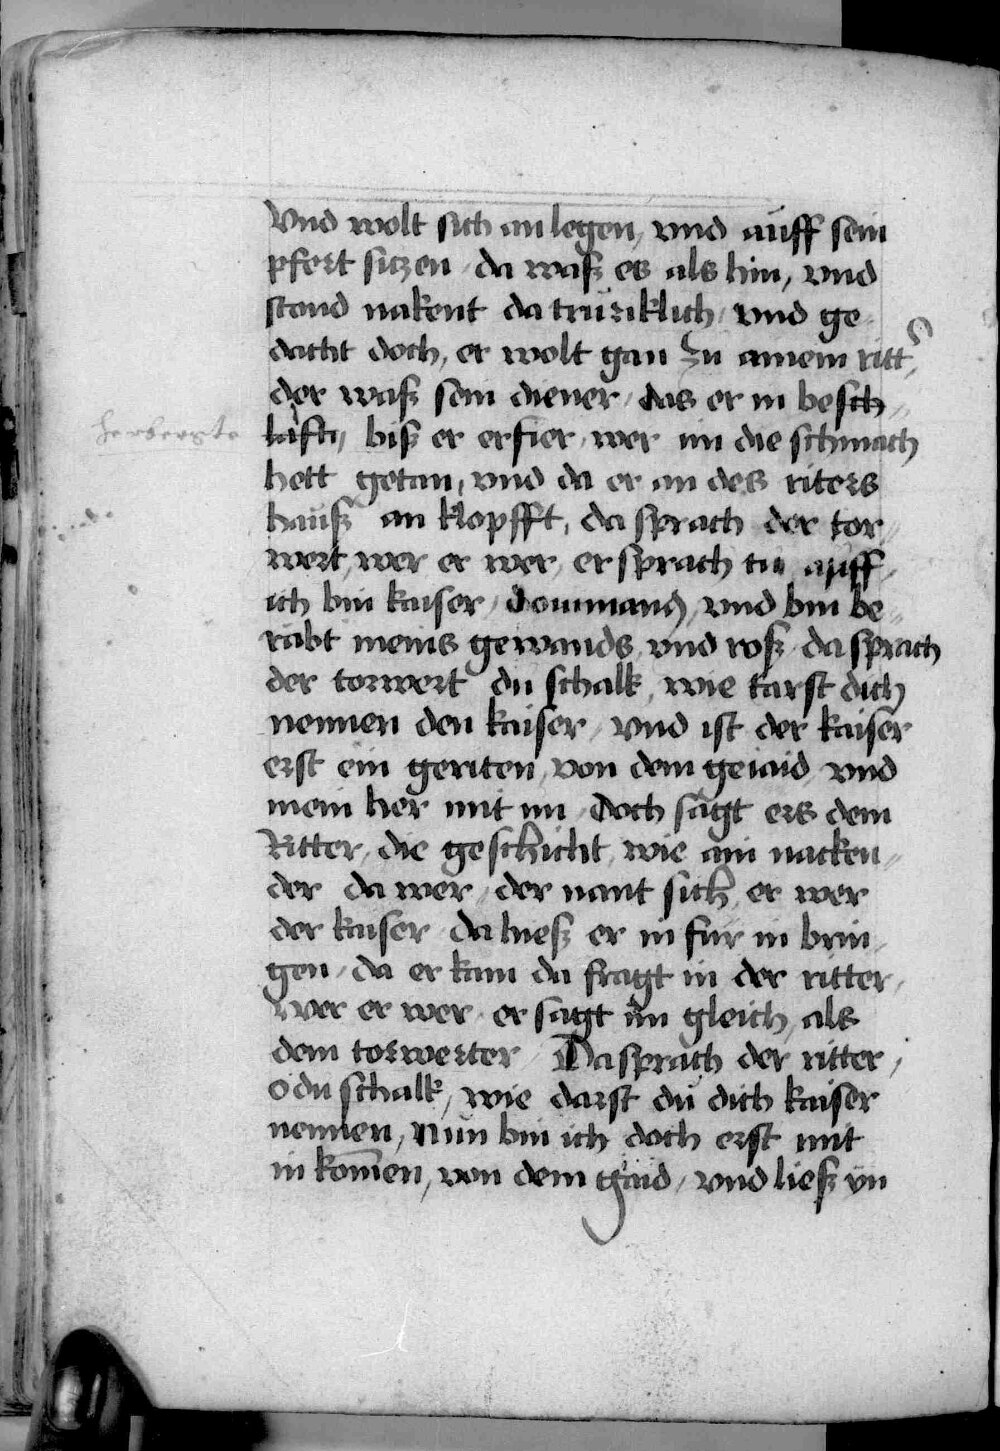 Vnd wolt sich an legen, vnd auff sein
pfert siczen / da wasz es als hin, vnd
stend nakent da truriklich / vnd ge
dacht doch, er wolt gan zu ainem ritt
der wasz sein diener / das er in besch
herbergte
läfti, bisz er erfier, wer im die schmach
hett getan, vnd da er an des riters
hausz an klopfft, da sprach der tor
wert, wer er wer, er sprach tu auff,
ich bin kaiser / vnd bin be
rabt meins gewands vnd rosz / da sprach
der torwert du schalk, wie tarst dich
nennen den kaiser / vnd ist der kaiser
erst ein geriten, von dem geiaid vnd
mein her mit im / doch sagt ers dem
Ritter, die geschicht, wie ain nacken
der da wer / der nant sich er wer
der kaiser / da hiesz er in für in brin
gen / da er kam da fragt in der ritter,
Wer er wer / er sagt im gleich, als
dem torwerter / Da sprach der ritter,
o du schalk, wie darst du dich kaiser
nennen, nun bin ich doch erst mit
in komen, von dem gaid / vnd liesz yn